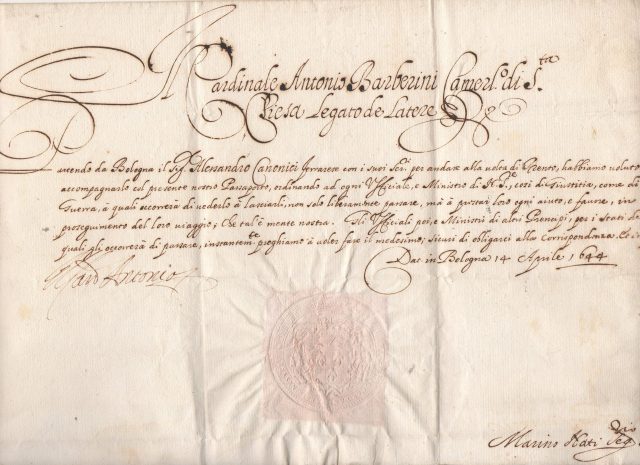 Il Cardinale Antonio Barberini Camerl.º di S.ta
Chiesa Legato de Latere &c
acendo da Bologna il Sig.r Alessandro Canonici con i suoi per andare alla volta di habbiamo voluto
accompagnarlo col presente nostro Passaporto, ordinando ad ogni Uffitiale, e Ministro di così di Giustitia, come di
Guerra, à quali occorerà di vederlo à lasciarli, non solo liberamente passare, mà à prestarli ogni aiuto, e favore, in
proseguimento del loro viaggio, Che tal'è mente nostra. Gli Uffitiali poi, e Ministri di altri Prencipi, per i Stati de
quali gli occorerà di passare, instantem.te preghiamo à voler fare il medesimo, sicuri di obligarci alla Corrispondenza
Dat. in Bologna 14 Aprile 1644
Card Antonio
Marino